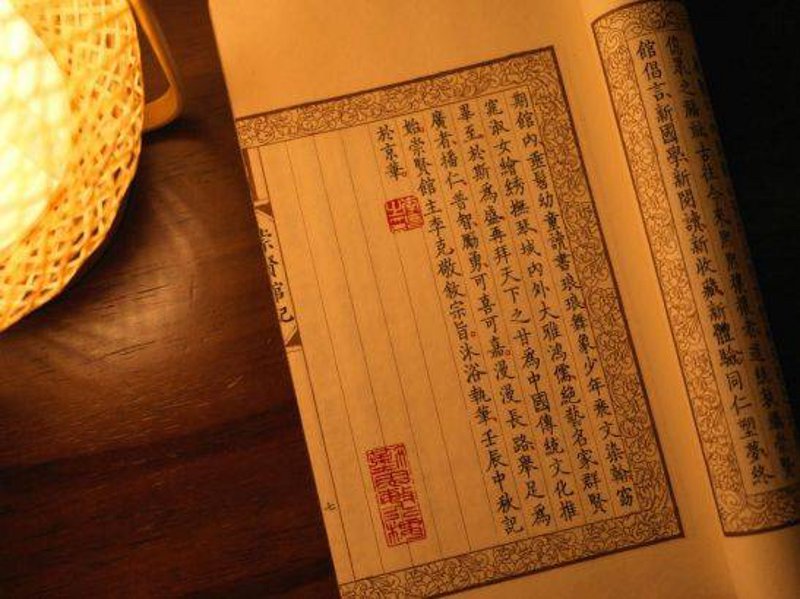 之 古往今來
館倡言新國學新閱讀新收藏新體驗同仁塑夢終
期館內垂髫幼童讀書琅琅舞象少年乘文染翰窈
窕淑女繪綉撫琴域內外大雅鴻儒絕藝名家群賢
畢至於斯為盛再拜天下之甘為中國傳統文化推
廣者揚仁普智勵勇可喜可嘉漫漫長路舉足為
始崇賢館主李克敬敘宗旨沐浴執筆壬辰中秋記
於京華
崇賢館記
七